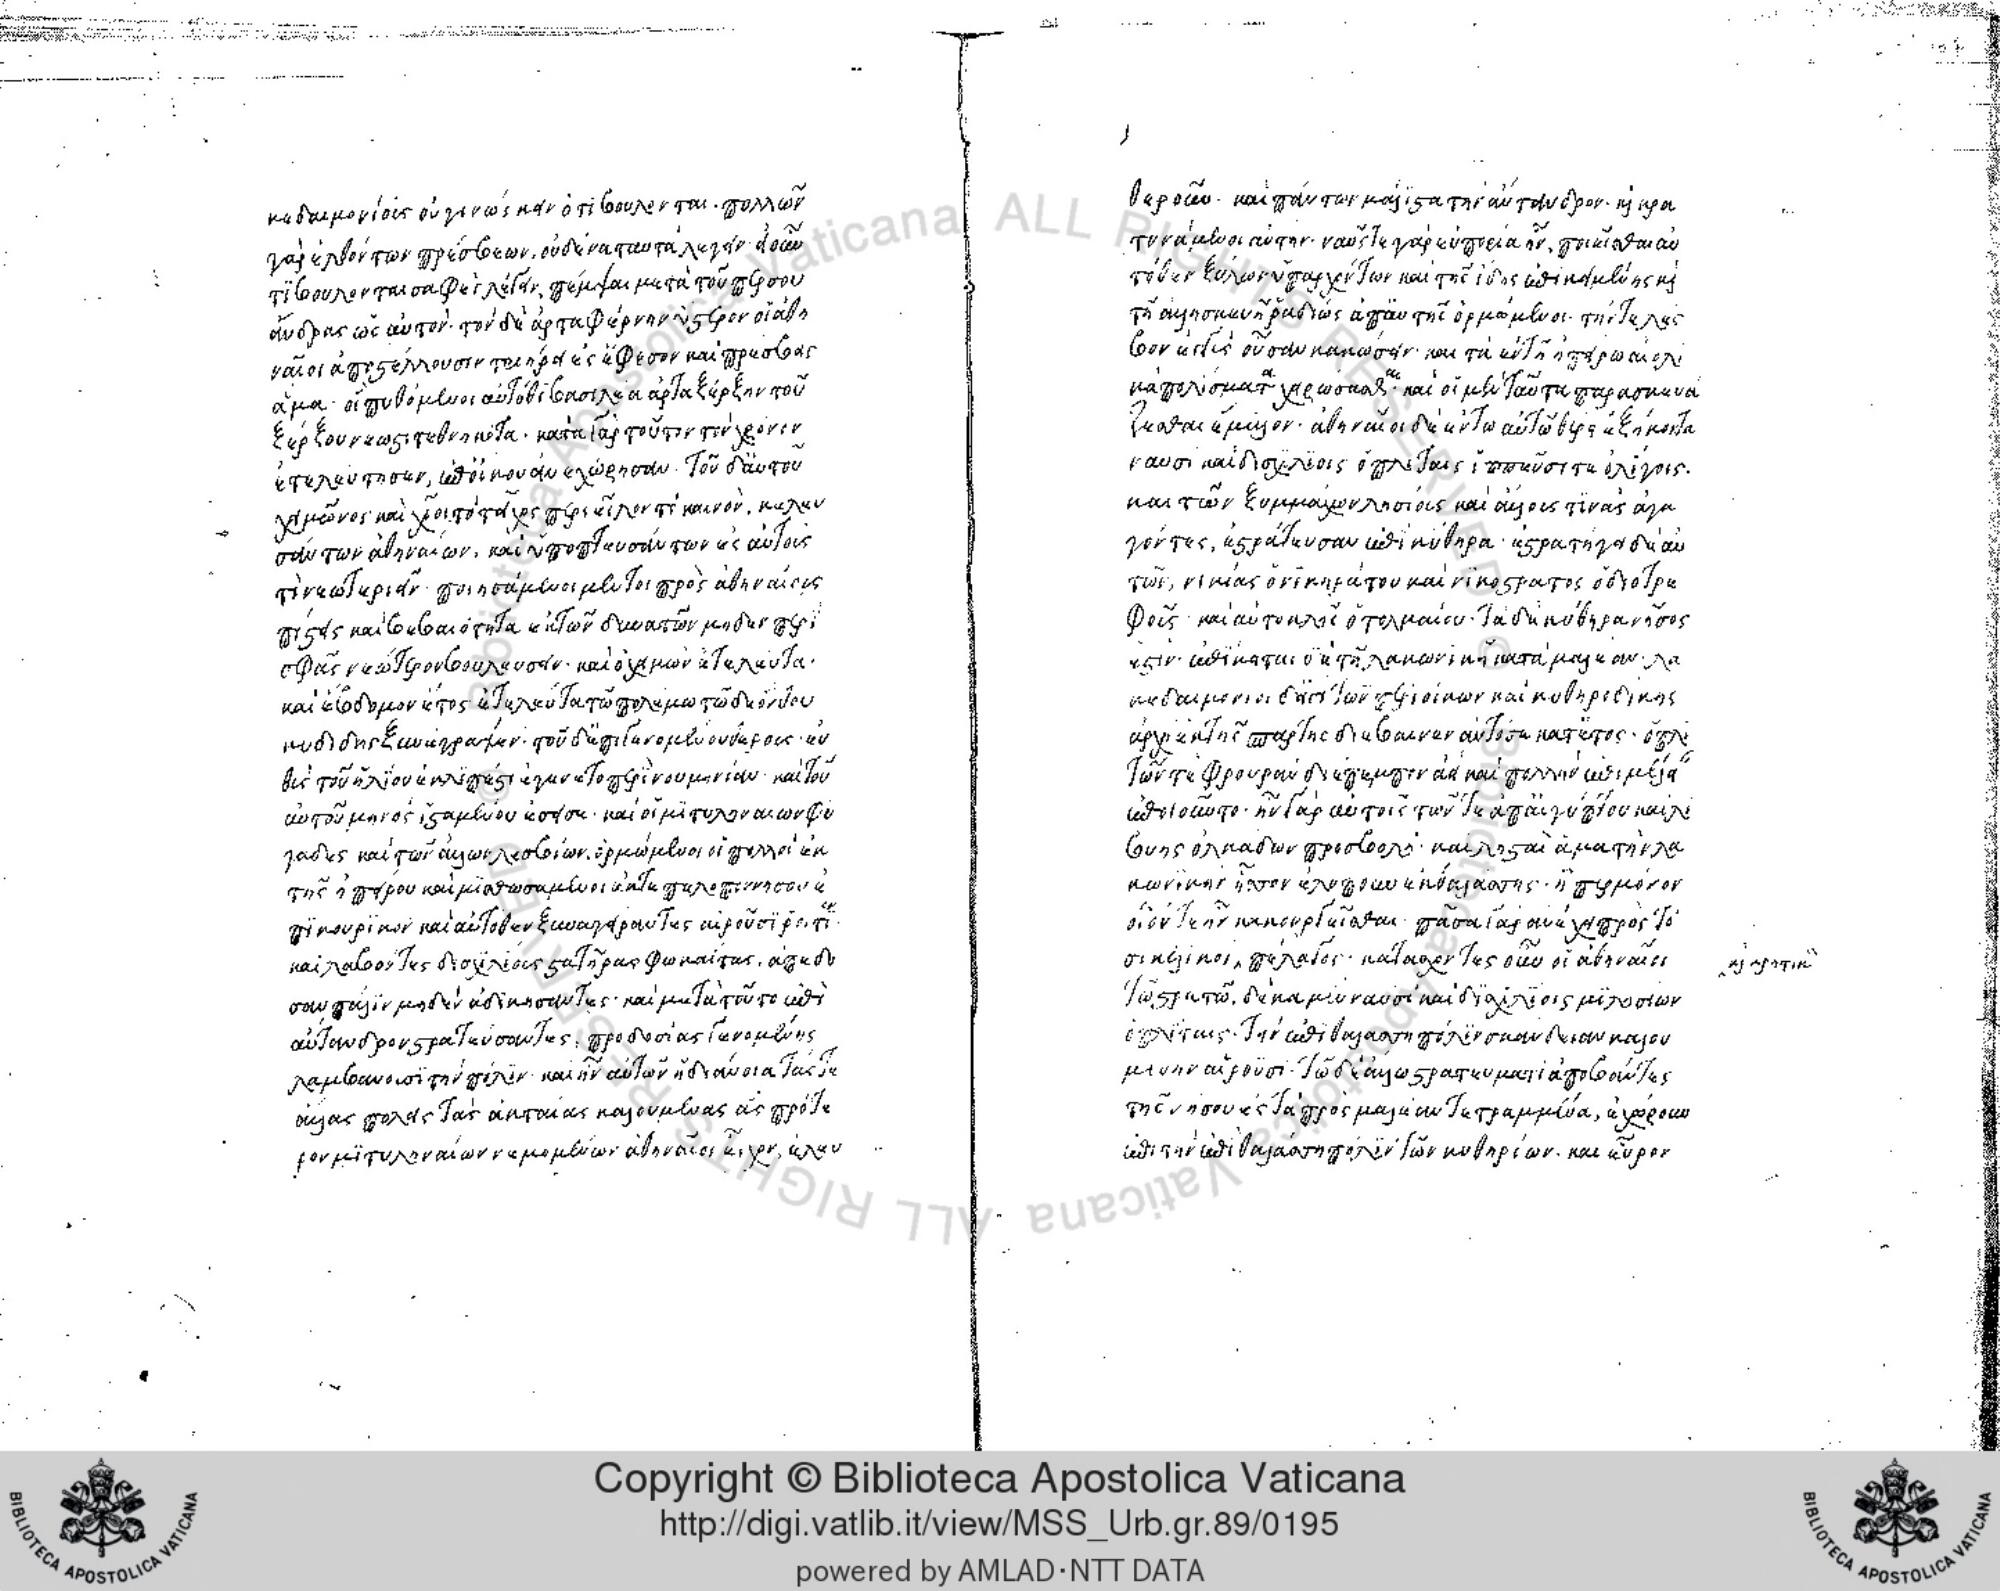 κεδαιμονίοις οὐ γινώσκειν ὅτι βούλονται· πολλῶν
γὰρ ἐλθόντων πρέσβεων, οὐδένα ταυτὰ λέγειν· εἰ οὖν
τι βούλονται σαφὲς λέγειν, πέμψαι μετὰ τοῦ πέρσου
ἄνδρας ὡς αὐτόν· τὸν δὲ ἀρταφέρνην ὕστερον οἱ ἀθη
ναῖοι ἀποστέλλουσιν τριήρει ἐς ἔφεσον καὶ πρέσβεις
ἅμα· οἳ πυθόμενοι αὐτόθι βασιλέα ἀρταξέρξην τοῦ
ξέρξου νεωστὶ τεθνηκότα· κατὰ γὰρ τοῦτον τὸν χρόνον
ἐτελεύτησεν, ἐπ' οἴκου ἀνεχώρησαν· τοῦ δ' αὐτοῦ
χειμῶνος καὶ χῖοι τὸ τεῖχος περιεῖλον τὸ καινὸν, κελευ
σάντων ἀθηναίων, καὶ ὑποπτευσάντων ἐς αὐτούς
τι νεωτεριεῖν· ποιησάμενοι μέντοι πρὸς ἀθηναίους
πίστεις καὶ βεβαιότητα ἐκ τῶν δυνατῶν μηδὲν περὶ
σφᾶς νεώτερον βουλεύσειν· καὶ ὁ χειμὼν ἐτελεύτα·
καὶ ἕβδομον ἔτος ἐτελεύτα τῶ πολέμω τῶδε ὃν θου
κυδίδης ξυνέγραψεν· τοῦ δ' ἐπιγενομένου θέρους εὐ
θὺς τοῦ ἡλίου ἐκλιπές τι ἐγένετο περὶ νουμηνίαν· καὶ τοῦ
αὐτοῦ μηνὸς ἱσταμένου ἔσεισε· καὶ οἱ μιτυληναίων φυ
γάδες καὶ τῶν ἄλλων λεσβίων, ὁρμώμενοι οἱ πολλοὶ ἐκ
τῆς ἠπείρου καὶ μισθωσάμενοι ἔκ τε πελοποννήσου ἐ
πικουρικὸν καὶ αὐτόθεν ξυναγείραντες αἱροῦσι ῥοίτειον·
καὶ λαβόντες δισχιλίους στατῆρας φωκαίτας, ἀπέδο
σαν πάλιν μηδὲν ἀδικήσαντες· καὶ μετὰ τοῦτο ἐπὶ
αὔτανδρον στρατεύσαντες, προδοσίας γενομένης
λαμβάνουσι τὴν πόλιν· καὶ ἦν αὐτῶν ἡ διάνοια τάς τε
ἄλλας πόλεις τὰς ἀκταίας καλουμένας ἃς πρότε
ρον μιτυληναίων νεμομένων ἀθηναῖοι εἶχον, ἐλευ
θεροῦν· καὶ πάντων μάλιστα τὴν αὔτανδρον· καὶ κρα
τυνάμενοι αὐτήν· ναῦς τε γὰρ εὐπορία ἦν, ποιεῖσθαι αὐ
τόθεν ξύλων ὑπαρχόντων καὶ τῆς ἴδης ἐπικειμένης καὶ
τῆ ἄλλη σκευῆ ῥαδίως ἀπ' αὐτῆς ὁρμώμενοι· τήν τε λέσ
βον ἐγγὺς οὖσαν κακώσειν· καὶ τὰ ἐν τῆ ἠπείρω αἰολι
κὰ πολίσματα χειρώσεσθαι· καὶ οἱ μὲν ταῦτα παρασκευά
ζεσθαι ἔμελλον· ἀθηναῖοι δὲ ἐν τῶ αὐτῶ θέρει ἑξήκοντα
ναυσὶ καὶ δισχιλίοις ὁπλίταις ἱππεῦσί τε ὀλίγοις·
καὶ τῶν ξυμμάχων μιλησίους καὶ ἄλλους τινὰς ἀγα
γόντες, ἐστράτευσαν ἐπὶ κύθηρα· ἐστρατήγει δὲ αὐ
τῶν, νικίας ὁ νικηράτου καὶ νικόστρατος ὁ διοτρέ
φους· καὶ αὐτοκλῆς ὁ τολμαίου· τὰ δὲ κύθηρα νῆσός
ἐστιν· ἐπίκειται δὲ τῆ λακωνικῆ κατὰ μαλέαν· λα
κεδαιμόνιοι δ' εἰσὶ τῶν περιοίκων καὶ κυθηροδίκης
ἀρχὴ ἐκ τῆς σπάρτης διέβαινεν αὐτόσε κατ' ἔτος· ὁπλι
τῶν τε φρουρὰν διέπεμπον ἀεὶ καὶ πολλὴν ἐπιμέλειαν
ἐποιοῦντο· ἦν γὰρ αὐτοῖς τῶν τε ἀπ' αἰγύπτου καὶ λι
βύης ὁλκάδων προσβολὴ· καὶ λῃσταὶ ἅμα τὴν λα
κωνικὴν ἧσσον ἐλύπουν ἐκ θαλάσσης· ἧπερ μόνον
οἷόν τε ἦν κακουργεῖσθαι· πᾶσα γὰρ ἀνέχει πρὸς τὸ
σικελικὸν, πέλαγος· κατασχόντες οὖν οἱ ἀθηναῖοι
καὶ κρητικὸν
τῶ στρατῶ, δέκα μὲν ναυσὶ καὶ δισχιλίοις μιλησίων
ὁπλίταις· τὴν ἐπὶ θαλάσση πόλιν σκάνδειαν καλου
μένην αἱροῦσι· τῶ δὲ ἄλλω στρατεύματι ἀποβάντες
τῆς νήσου ἐς τὰ πρὸς μαλέαν τετραμμένα, ἐχώρουν
ἐπὶ τὴν ἐπὶ θαλάσση πόλιν τῶν κυθηρίων· καὶ εὗρον
Copyright © Biblioteca Apostolica Vaticana
http://digi.vatlib.it/view/MSS_Urb.gr.89/0195
powered by AMLAD·NTT DATA
BIBLIOTECA APOSTOLICA VATICANA
BIBLIOTECA APOSTOLICA VATICANA